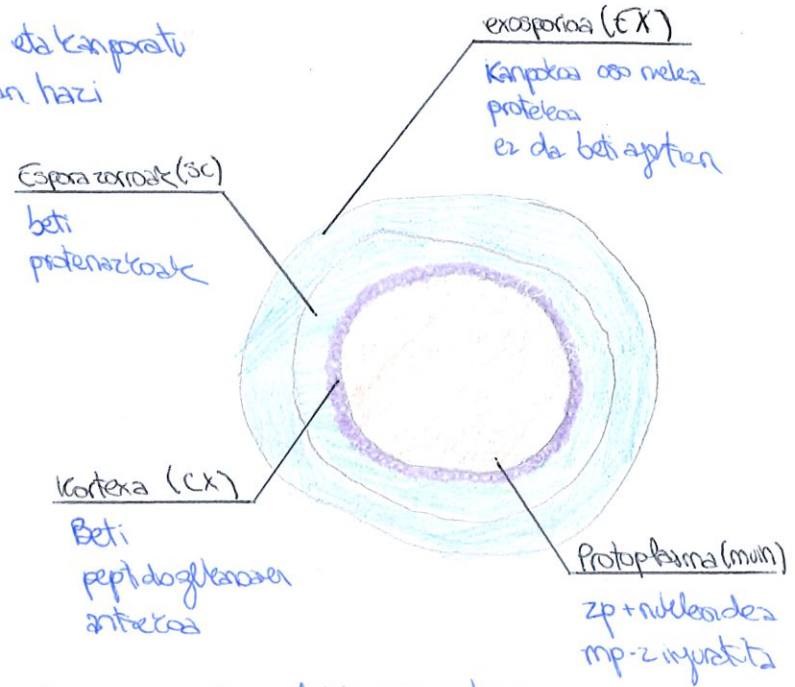 eta kanporatu
n hazi
exosporioa (EX)
Kanpokoa oso mehea
proteikoa
ez da beti agertzen
Espora zorroak (SC)
beti
proteinazkoak
Kortexa (CX)
Beti
peptidoglikanoaren
antzekoa
Protoplasma (muin)
zp + nukleoidea
mp-z inguratuta